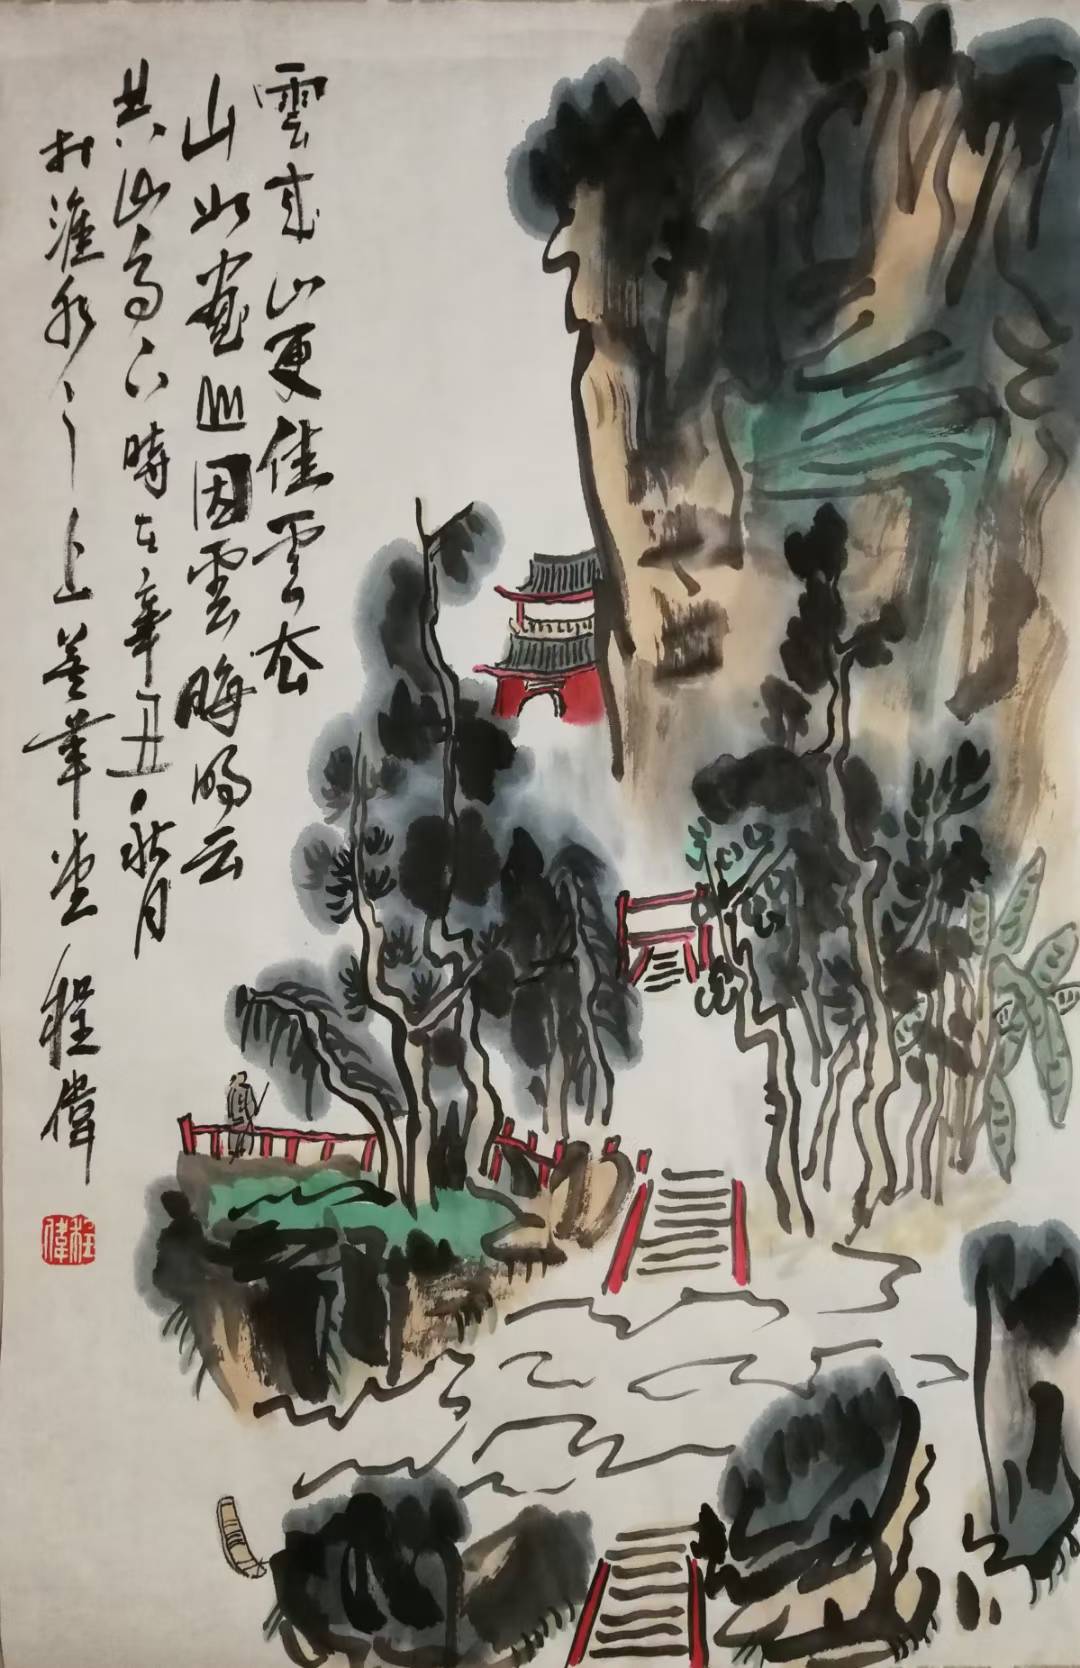 雲来山更佳雲去
山如畫山因雲晦明云
共山高下時在辛丑秋月
於淮水之上堂程偉
程偉